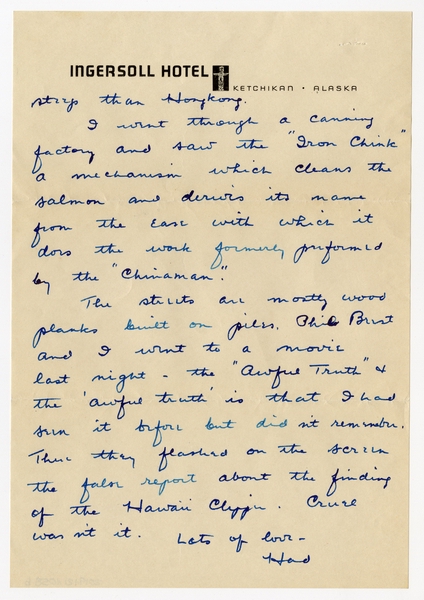 INGERSOLL HOTEL
KETCHIKAN • ALASKA
steps than Hongkong.
I went through a canning
factory and saw the "Iron Chink"
a mechanism which cleans the
salmon and derives its name
from the ease with which it
does the work formerly preformed
by the "Chinaman".
The streets are mostly wood
planks built on piles. Phil Brest
and I went to a movie
last night - the "Awful Truth" &
the 'awful truth' is that I had
seen it before but didn't remember.
Then they flashed on the screen
the false report about the finding
of the Hawaii Clipper. Cruel
wasn't it. Lots of love -
Had